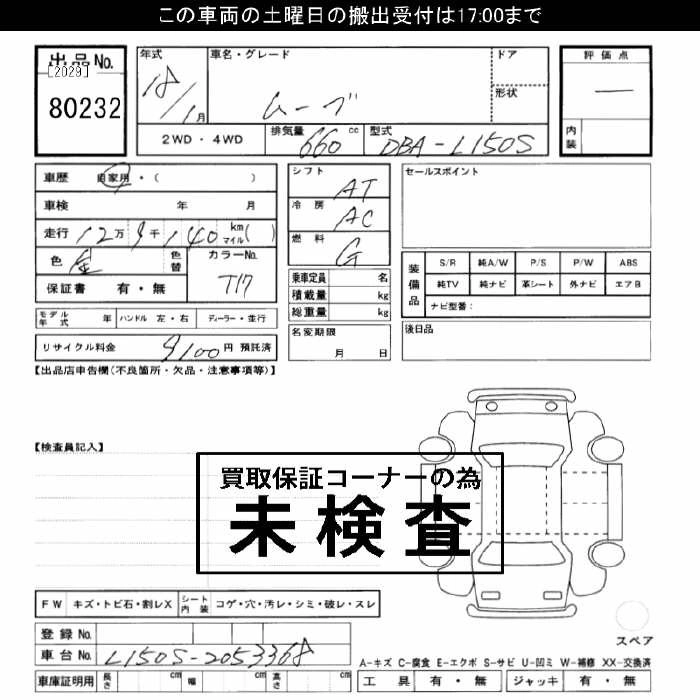 この車両の土曜日の搬出受付は17:00まで
出品No.
[2029]
80232
年式 18/1月
車名・グレード ムーブ
ドア
形状
評価点
—
内装
2WD・4WD
排気量 660 cc
型式 DBA-L150S
車歴 自家用・( )
車検 年 月
走行 12万9千140 km マイル( )
色 金 色替
カラーNo. T17
保証書 有・無
シフト AT
冷房 AC
燃料 G
乗車定員 名
積載量 kg
総重量 kg
セールスポイント
装備品
S/R 純A/W P/S P/W ABS
純TV 純ナビ 革シート 外ナビ エアB
ナビ型番:
モデル年式 年 ハンドル 左・右 ディーラー・並行
名変期限 月 日
後日品
リサイクル料金 9100円 預託済
【出品店申告欄(不良箇所・欠品・注意事項等)】
【検査員記入】
買取保証コーナーの為
未検査
FW キズ・トビ石・割レX シート内装 コゲ・穴・汚レ・シミ・破レ・スレ
スペア
登録No.
車台No. L150S-2053368
A-キズ C-腐食 E-エクボ S-サビ U-凹ミ W-補修 XX-交換済
車庫証明用 長さ cm 幅 cm 高さ cm
工具 有・無 ジャッキ 有・無